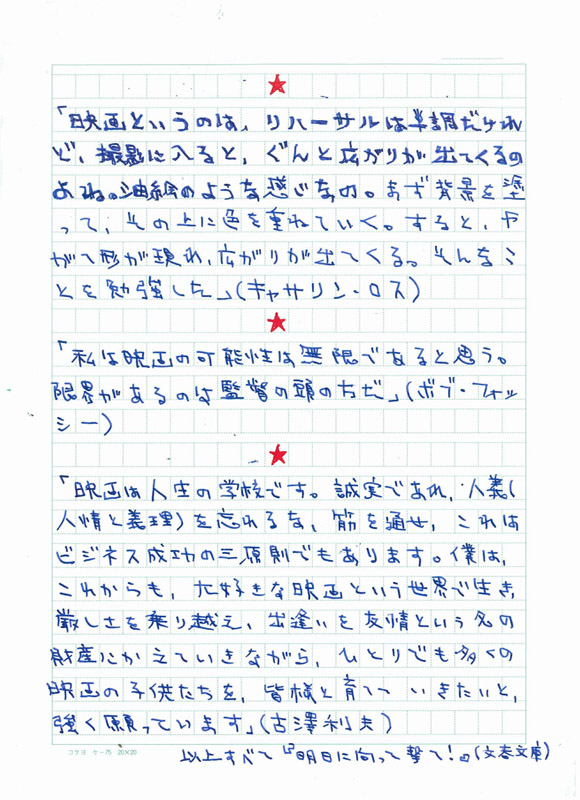 ★
「映画というのは、リハーサルは単調だけれ
ど、撮影に入ると、ぐんと広がりが出てくるの
よね。油絵のような感じなの。まず背景を塗
って、その上に色を重ねていく。すると、や
がて形が現れ、広がりが出てくる。そんなこ
とを勉強した」(キャサリン・ロス)
★
「私は映画の可能性は無限であると思う。
限界があるのは監督の頭の方だ」(ボブ・フォッ
シー)
★
「映画は人生の学校です。誠実であれ、人義(
人情と義理)を忘れるな、筋を通せ、これは
ビジネス成功の三原則でもあります。僕は、
これからも、大好きな映画という世界で生き、
厳しさを乗り越え、出逢いを友情という名の
財産にかえていきながら、ひとりでも多くの
映画の子供たちを、皆様と育てていきたいと、
強く願っています」(古澤利夫)
コクヨ ケー75 20×20
以上すべて『明日に向って撃て!』(文春文庫)